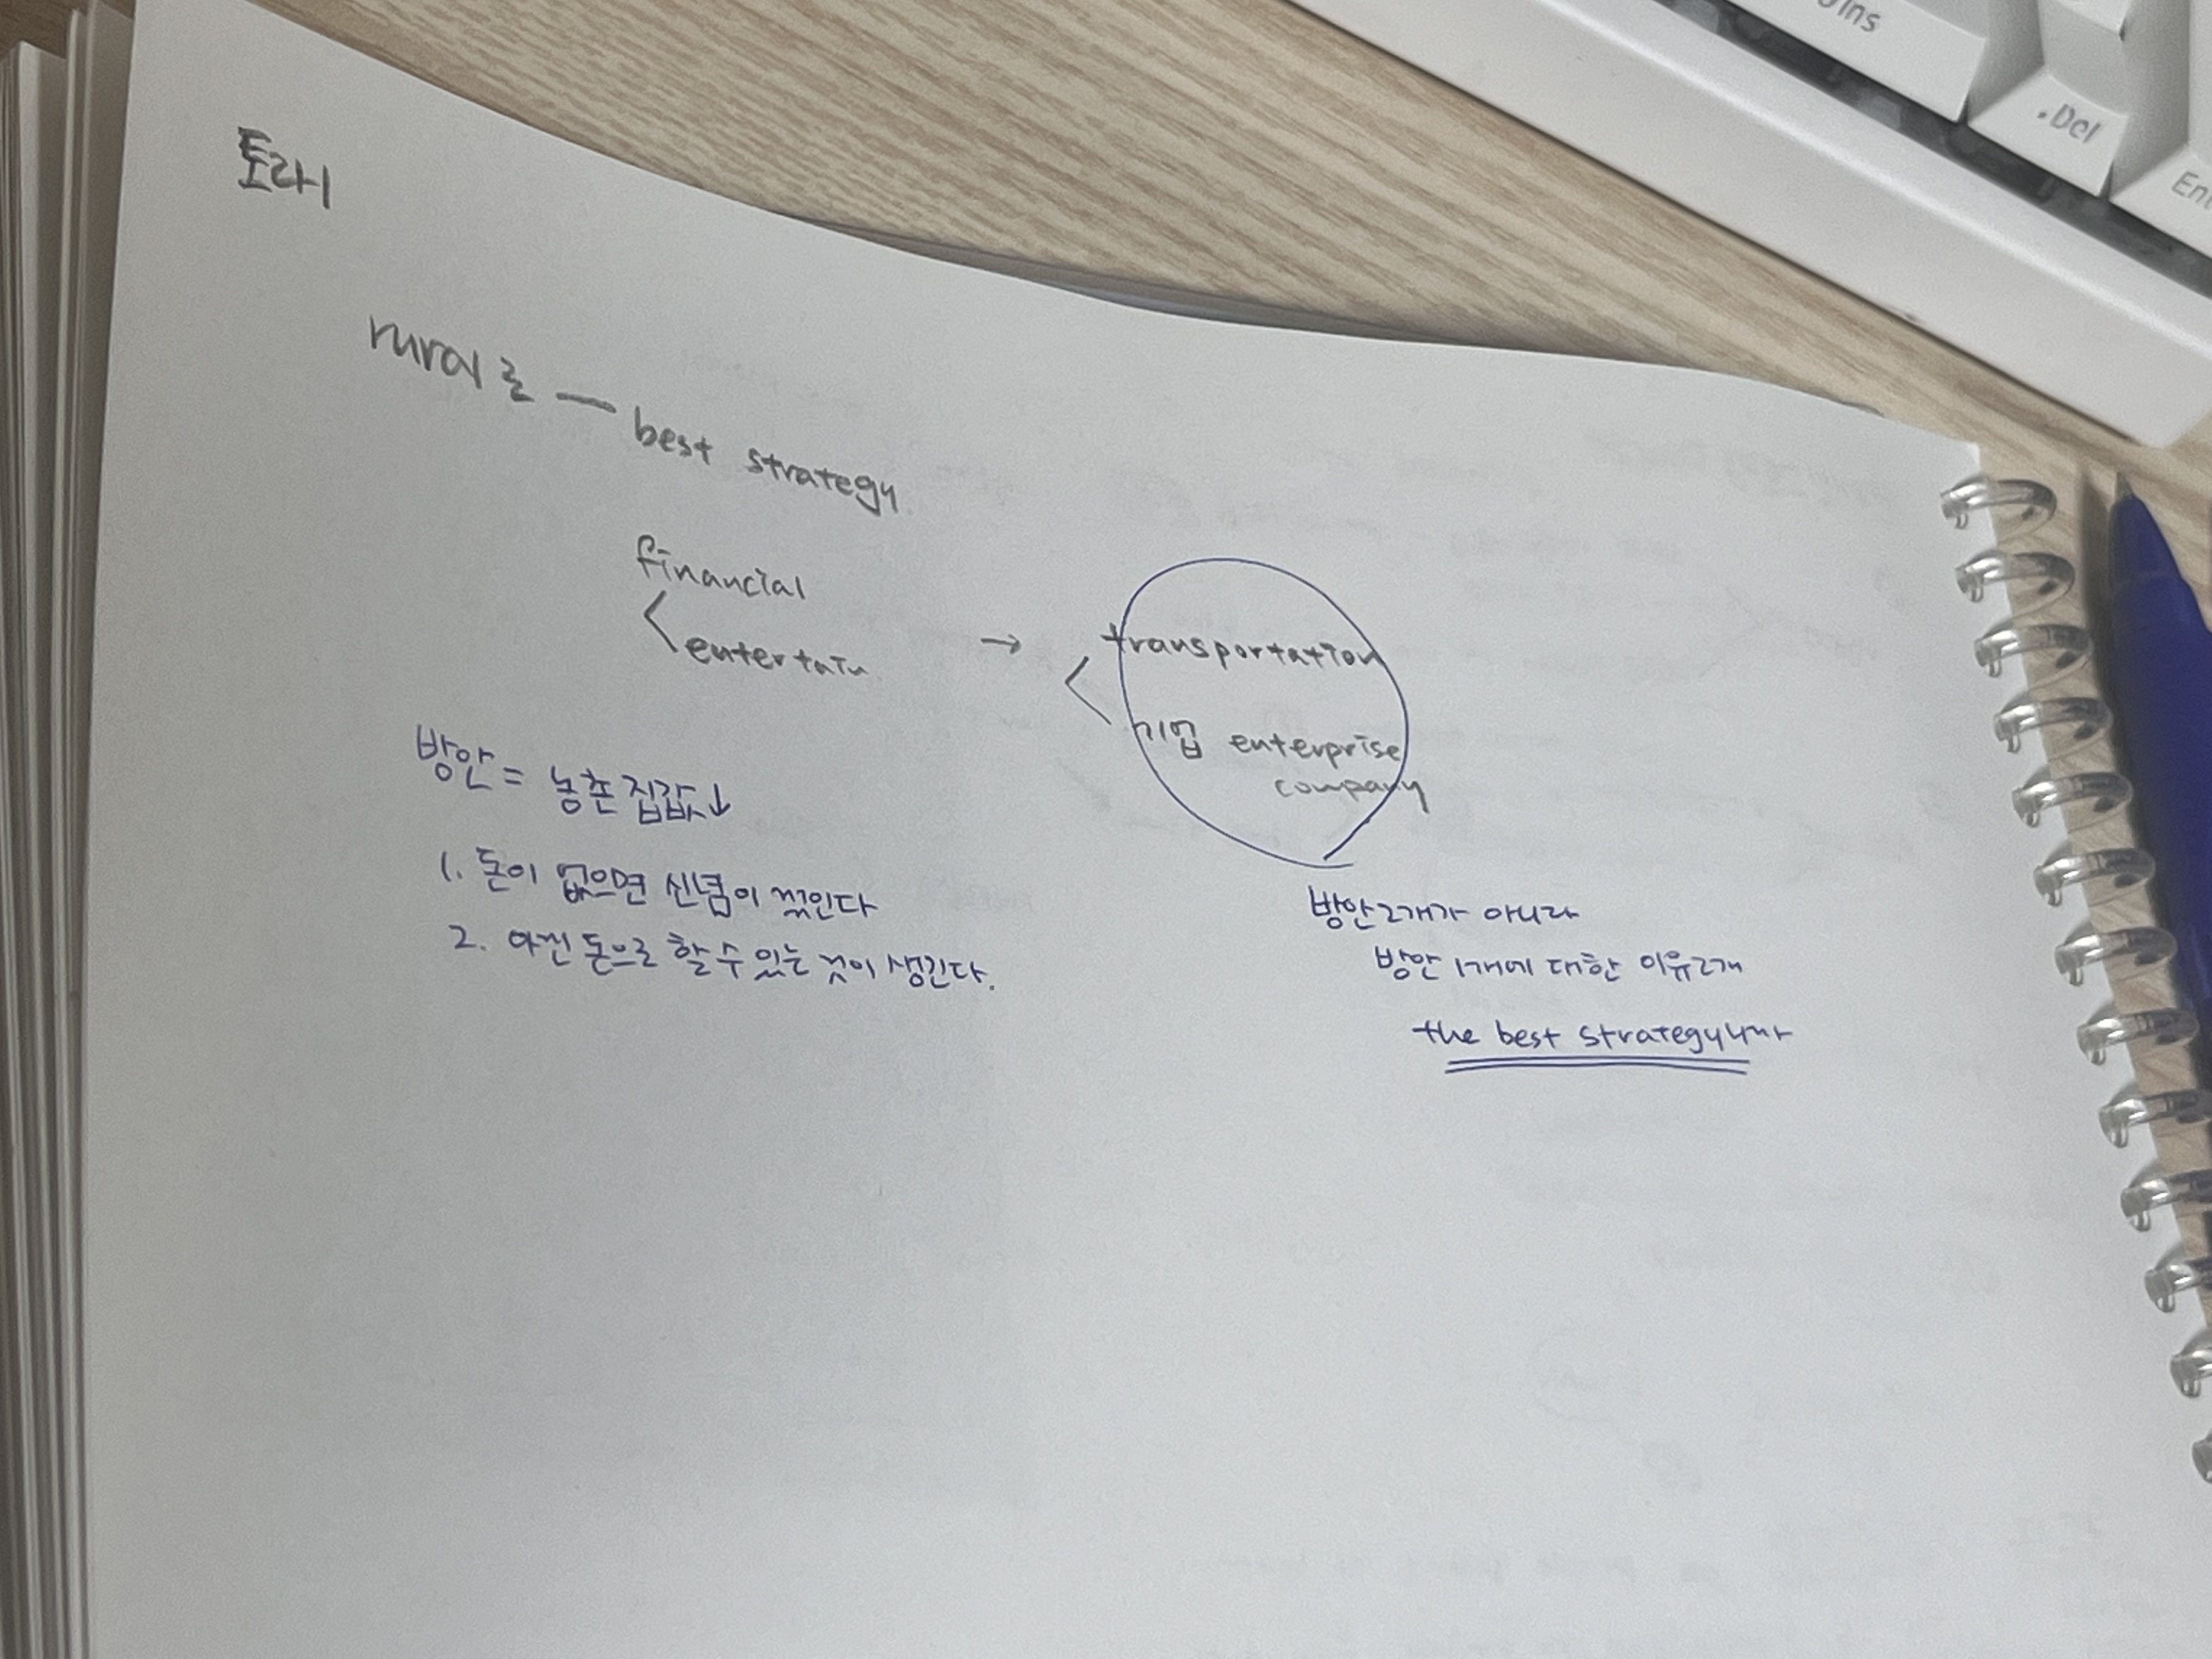 토라이
rural로 — best strategy.
financial
entertain
→ transportation
기업 enterprise
company
방안 = 농촌 집값↓
1. 돈이 없으면 신념이 꺾인다
2. 아낀 돈으로 할 수 있는 것이 생긴다.
방안 2개가 아니라
방안 1개에 대한 이유 2개
the best strategy니까
Ins
.Del